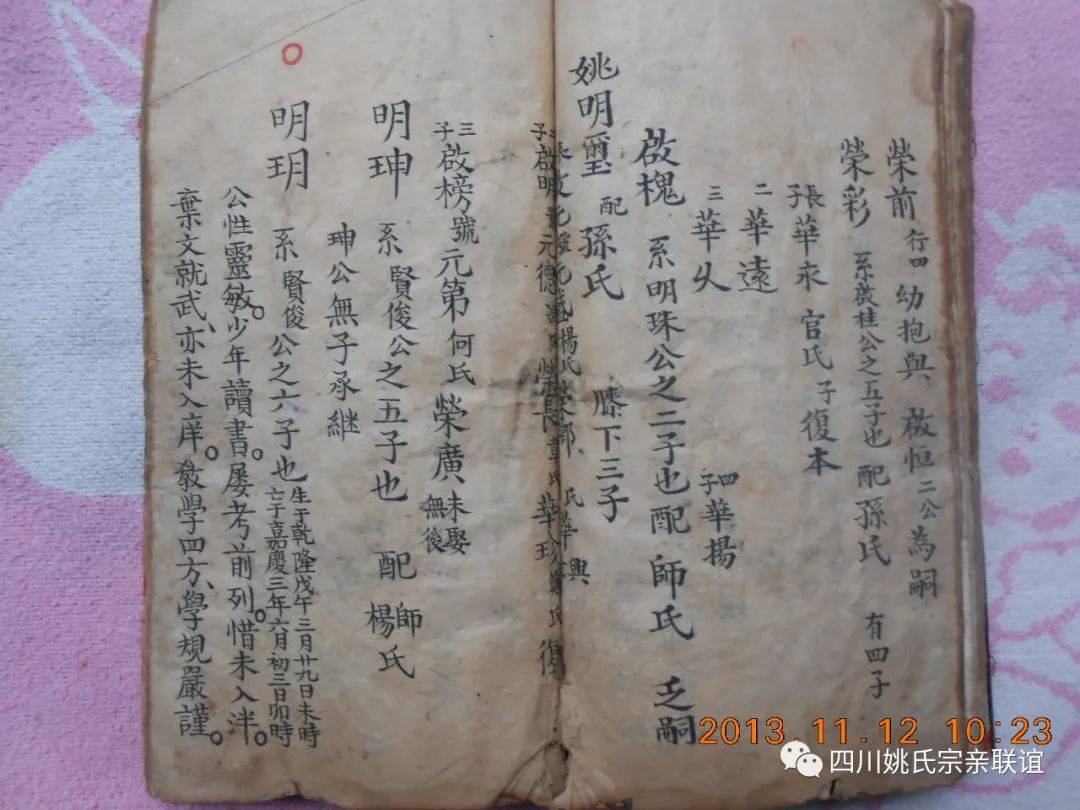 榮前 行四 幼抱與 啟恒二公為嗣
榮彩 系啟桂公之五子也 配孫氏 有四子
長子華永 官氏 子復本
二華遠
三華久 四子華揚
啟槐 系明珠公之二子也配師氏 乏嗣
姚明璽 配孫氏 膝下三子
楊氏榮
二子啟明 元德 榮長 華 氏 復
三子啟榜號元第 何氏 榮廣 未娶無後
明珅 系賢俊公之五子也 配師楊氏
珅公無子承継
明玥 系賢俊公之六子也 生于乾隆戊午三月廿九日未時
亡于嘉慶三年六月初三日卯時
公性靈敏。少年讀書。屡考前列。惜未入泮。
棄文就武、亦未入庠。教學四方、學規嚴謹。
2013.11.12 10:23
四川姚氏宗亲联谊